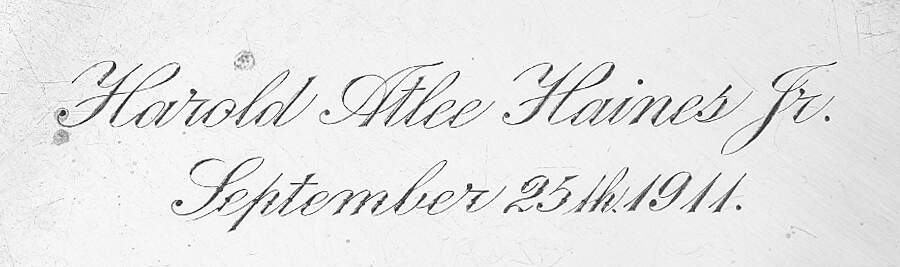 Harold Atlee Haines Jr.
September 25th. 1911.